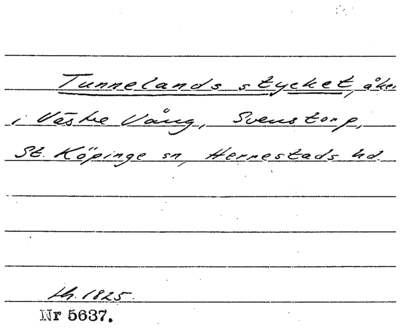 Tunnelands stycket, åker
i Västre Vång, Svenstorp,
St. Köpinge sn, Herrestads hd.
Lh. 1825.
Nr 5637.